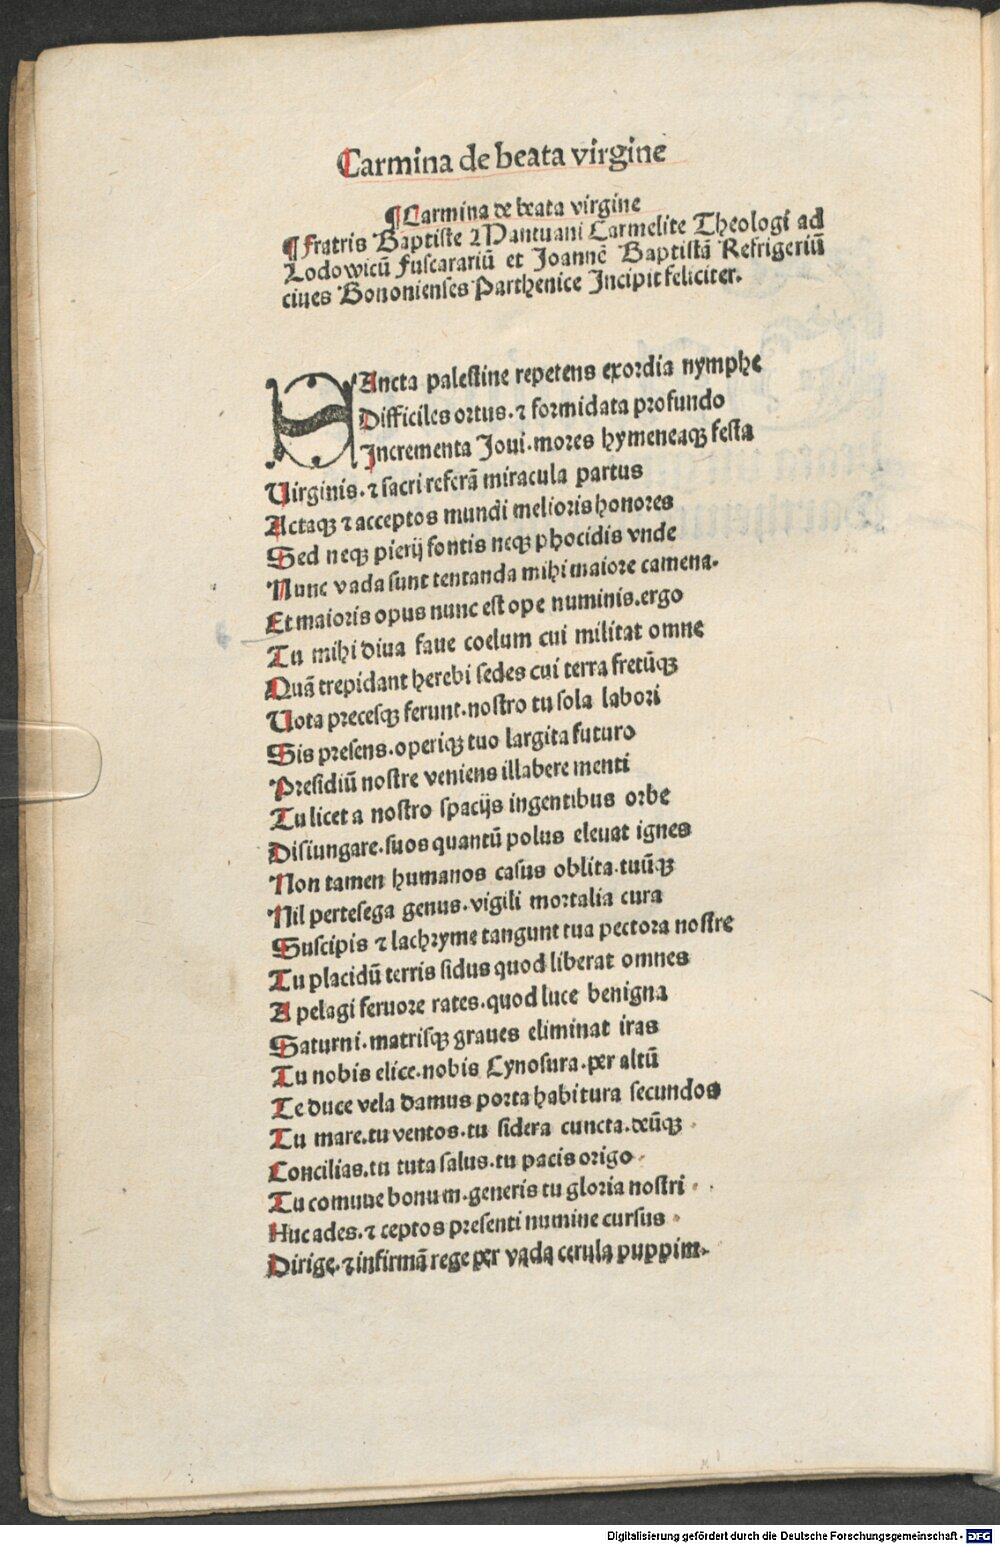 Carmina de beata virgine
¶Carmina de beata virgine
¶Fratris Baptiste Mantuani Carmelite Theologi ad
Lodowicū Fuscarariū et Joannē Baptistā Refrigeriū
ciues Bononienses Parthenice Incipit feliciter.
SAncta palestine repetens exordia nymphe
Difficiles ortus. ⁊ formidata profundo
Incrementa Joui. mores hymeneaqꝫ festa
Uirginis. ⁊ sacri referā miracula partus
Actaqꝫ ⁊ acceptos mundi melioris honores
Sed neqꝫ pierij fontis neqꝫ phocidis vnde
Nunc vada sunt tentanda mihi maiore camena.
Et maioris opus nunc est ope numinis. ergo
Tu mihi diua faue coelum cui militat omne
Quā trepidant herebi sedes cui terra fretūqꝫ
Uota precesqꝫ ferunt. nostro tu sola labori
Sis presens. operiqꝫ tuo largita futuro
Presidiū nostre veniens illabere menti
Tu licet a nostro spacijs ingentibus orbe
Disiungare. suos quantū polus eleuat ignes
Non tamen humanos casus oblita. tuūqꝫ
Nil pertesega genus. vigili mortalia cura
Suscipis ⁊ lachryme tangunt tua pectora nostre
Tu placidū terris sidus quod liberat omnes
A pelagi feruore rates. quod luce benigna
Saturni. matrisqꝫ graues eliminat iras
Tu nobis elice. nobis Cynosura. per altū
Te duce vela damus porta habitura secundos
Tu mare. tu ventos. tu sidera cuncta. deūqꝫ
Concilias. tu tuta salus. tu pacis origo.
Tu comune bonum. generis tu gloria nostri.
Huc ades. ⁊ ceptos presenti numine cursus.
Dirige. ⁊ infirmā rege per vada cerula puppim.
Digitalisierung gefördert durch die Deutsche Forschungsgemeinschaft - DFG